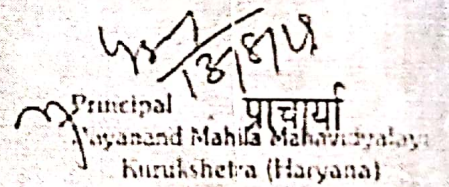 Principal प्राचार्या
Dayanand Mahila Mahavidyalaya
Kurukshetra (Haryana)